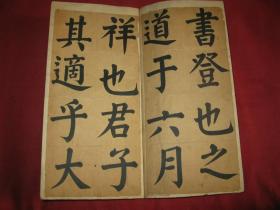 書登也之
道于六月
祥也君子
其適乎大